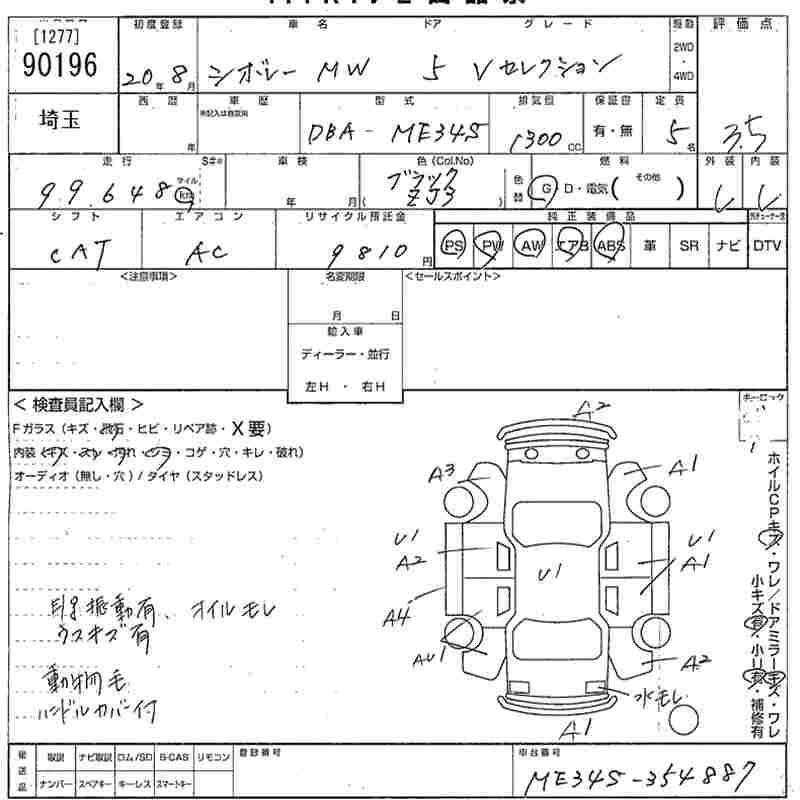 [1277]
90196
初度登録
20年8月
車名 ドア グレード
シボレー MW 5 Vセレクション
駆動
2WD
・
4WD
評価点
3.5
埼玉
西暦
年
車歴
未記入は自家用
型式
DBA-ME34S
排気量
1300CC
保証書
有・無
定員
5名
走行 S#※
99,648 マイル km
車検
年 月
色(Col.No)
ブラック
( ZJ3 )
色替
燃料
G・D・電気( その他 )
外装 内装
シフト
CAT
エアコン
AC
リサイクル預託金
9810円
純正装備品
PS PW AW エアB ABS 革 SR ナビ DTV
<注意事項>
名変期限
月 日
輸入車
ディーラー・並行
左H ・ 右H
<セールスポイント>
< 検査員記入欄 >
Fガラス(キズ・飛石・ヒビ・リペア跡・X要)
内装(キズ・スレ・汚れ・ビシヨ・コゲ・穴・キレ・破れ)
オーディオ(無し・穴)/タイヤ(スタッドレス)
振動有、オイルモレ
ウスキズ有
動物毛
ハンドルカバー付
A2
A3
A1
U1
A2
U1
U1
A1
A4
AU1
A2
水モレ
A1
ホイルCPキズ・ワレ/ドアミラーキズ・ワレ
小キズ有・小リ有・補修有
後送品
取説 ナビ取説 ロム/SD B-CAS リモコン
ナンバー スペアキー キーレス スマートキー
登録番号
車台番号
ME34S-354887